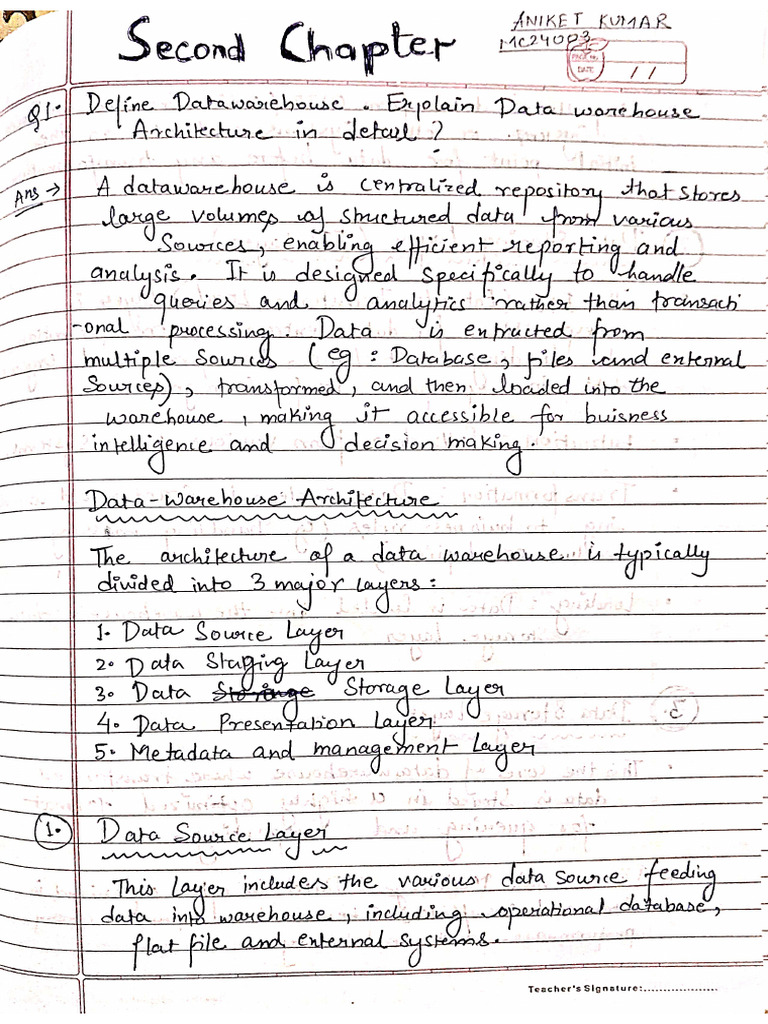 ANIKET KUMAR
MC24083
Second Chapter
PAGE No.
DATE / /
Q1. Define Datawarehouse. Explain Data warehouse
Architecture in detail?
Ans → A datawarehouse is centralized repository that stores
large volumes of structured data from various
Sources, enabling efficient reporting and
analysis. It is designed specifically to handle
queries and analytics rather than transacti
-onal processing. Data is extracted from
multiple Sources (eg: Database, files and external
Sources), transformed, and then loaded into the
warehouse, making it accessible for buisness
intelligence and decision making.
Data-Warehouse Architecture
The architecture of a data warehouse is typically
divided into 3 major layers:
1. Data Source Layer
2. Data Staging Layer
3. Data Storage Layer
4. Data Presentation Layer
5. Metadata and management Layer
1. Data Source Layer
This Layer includes the various data source feeding
data into warehouse, including operational database,
flat file and external systems.
Teacher's Signature:....................